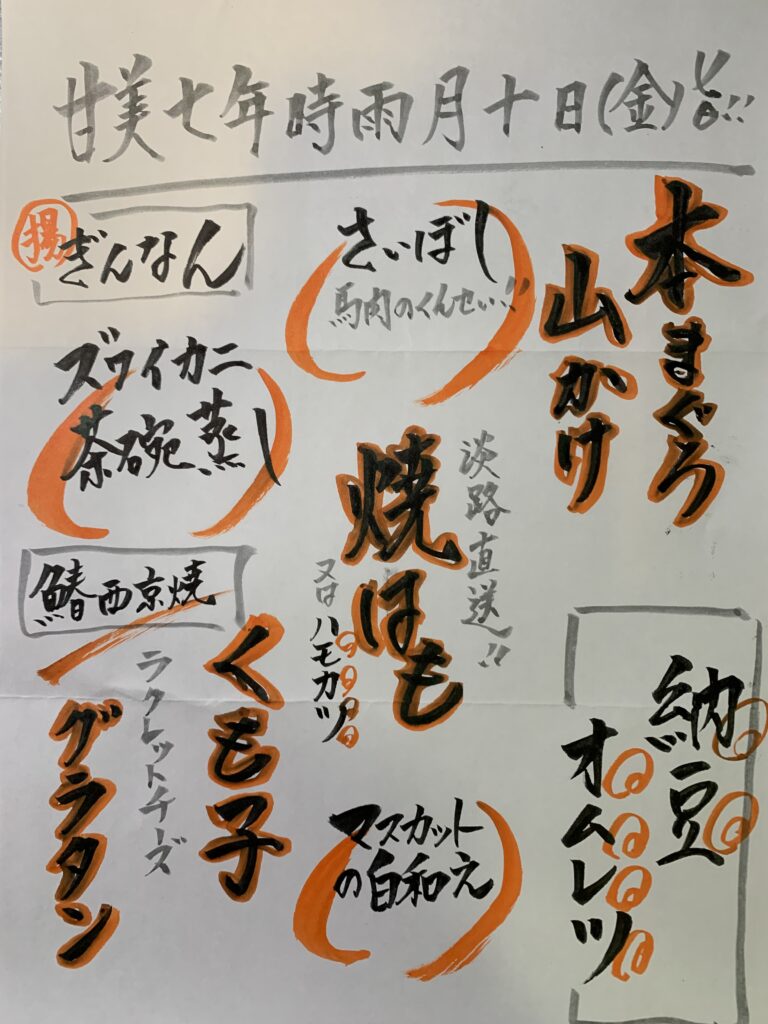 甘美七年時雨月十日(金)
本まぐろ
山かけ
さいぼし
馬肉のくんせい!!
揚
ぎんなん
ズワイカニ
茶碗蒸し
淡路直送!!
焼はも
又はハモカツ
鰆西京焼
くも子
ラクレットチーズ
グラタン
納豆
オムレツ
マスカット
の白和え